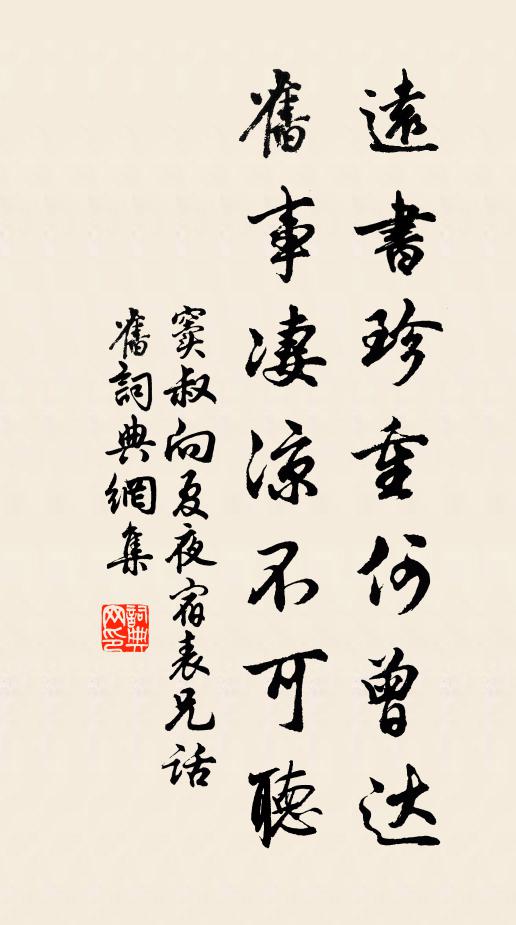 遠書珍重何曾达
舊事凄涼不可聽
竇叔向夏夜宿表兄話
舊詞典網集
詞典网印